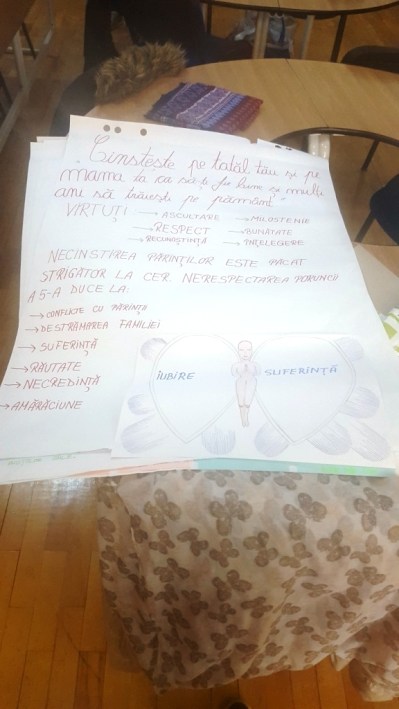 "Cinstește pe tatăl tău și pe
mama ta ca să-ți fie bine și mulți
ani să trăiești pe pământ"
VIRTUȚI → ASCULTARE → MILOSTENIE
→ RESPECT → BUNĂTATE
→ RECUNOȘTINȚĂ → ÎNȚELEGERE
NECINSTIREA PĂRINȚILOR ESTE PĂCAT
STRIGĂTOR LA CER. NERESPECTAREA PORUNCII
A 5-A DUCE LA:
→ CONFLICTE CU PĂRINȚII
→ DESTRĂMAREA FAMILIEI
→ SUFERINȚĂ
→ RĂUTATE
→ NECREDINȚĂ
→ AMĂRĂCIUNE
IUBIRE
SUFERINȚĂ